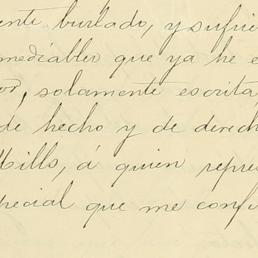 ente burlado, y sufrie
mediables que ya he e
or, solamente escrita
de hecho y de derech
Hills, á quien repre
pecial que me confi